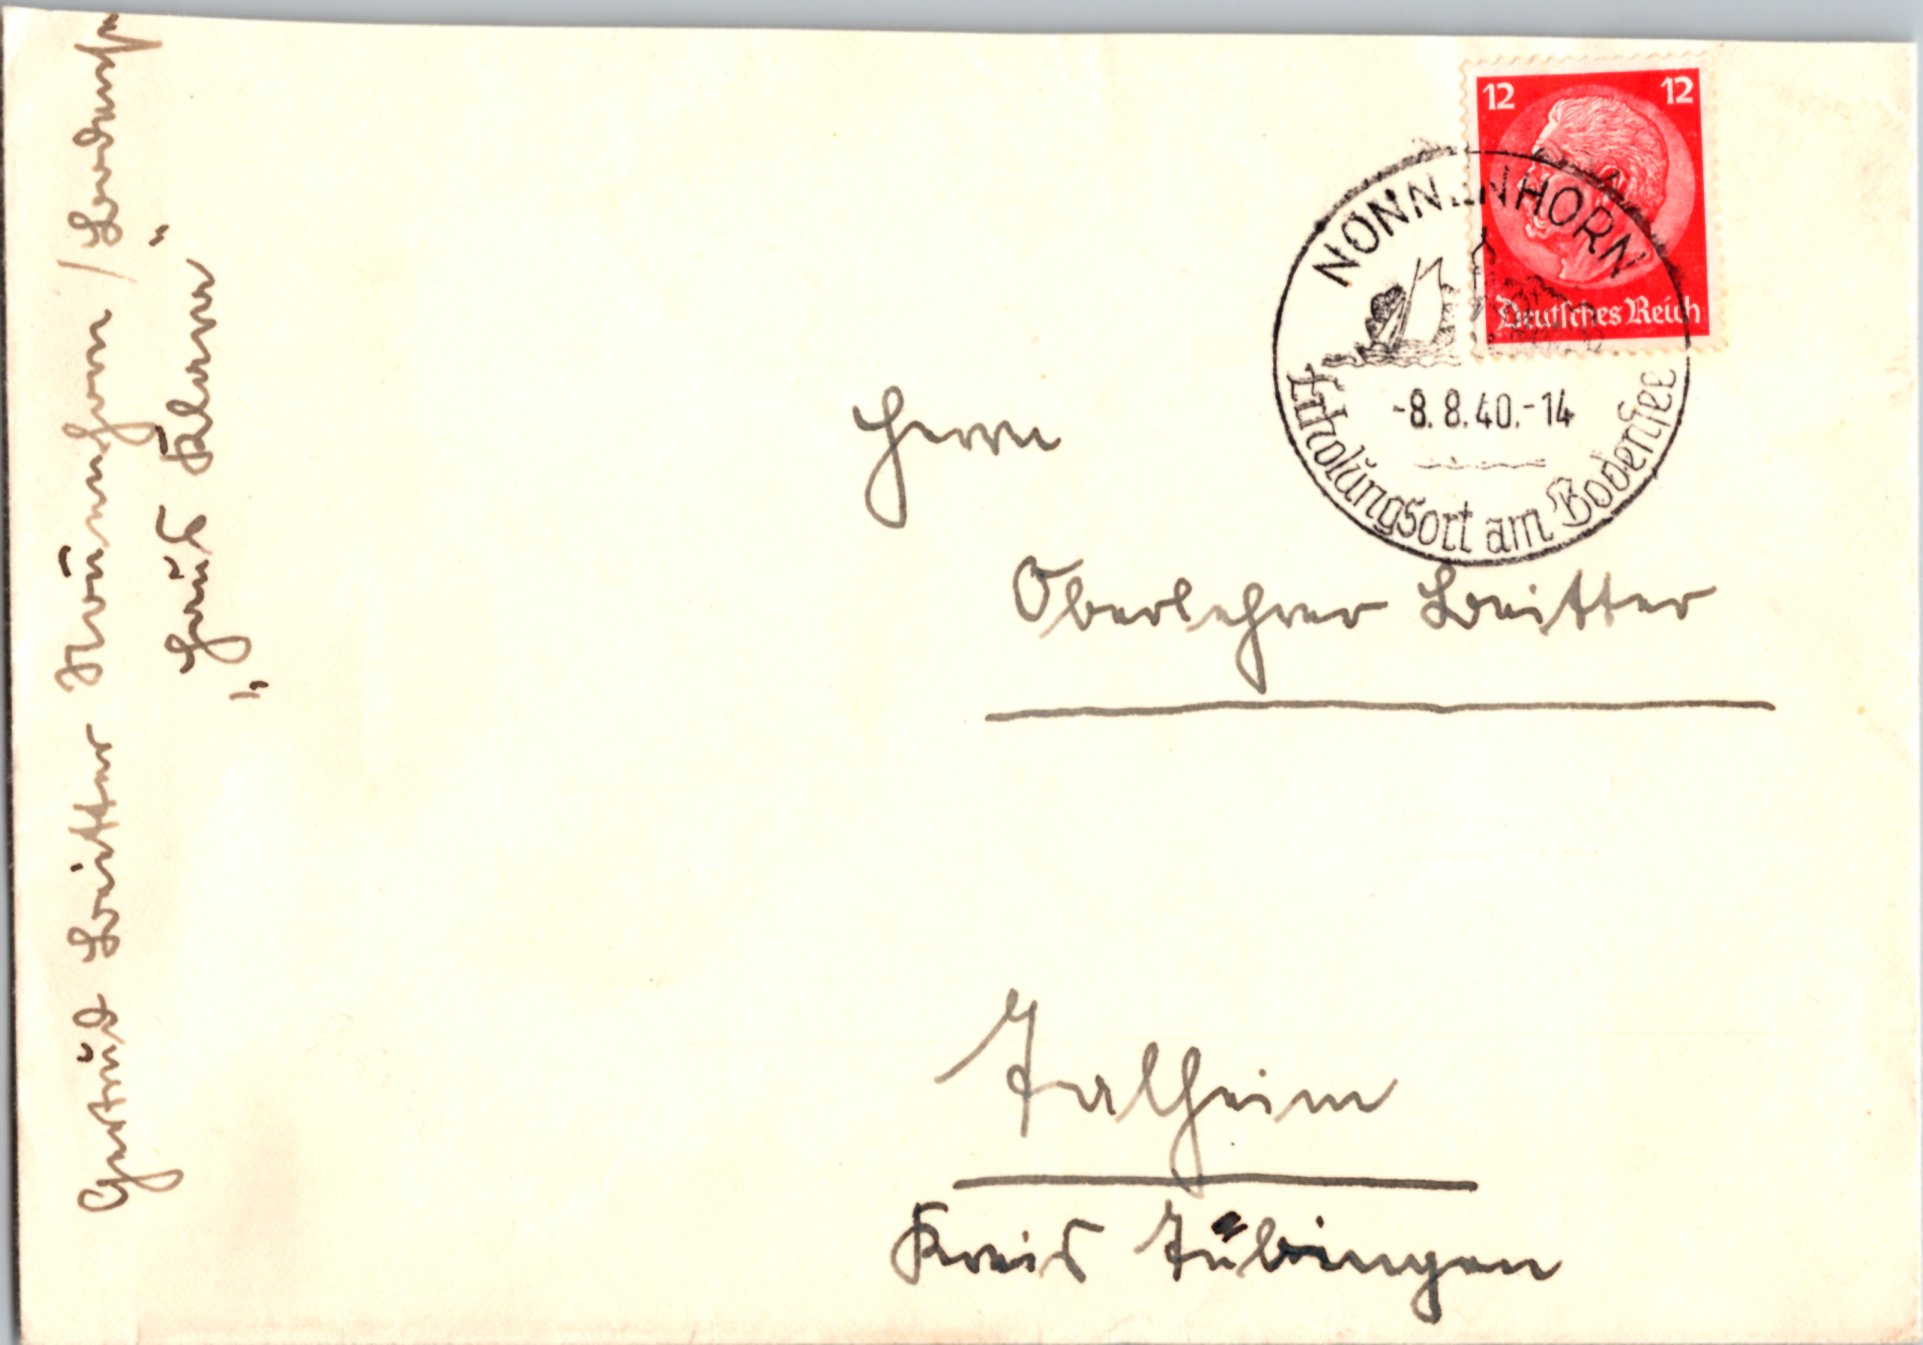 12 12
Deutsches Reich
NONNENHORN
-8.8.40.-14
Erholungsort am Bodensee
Herrn
Oberlehrer Beitter
Talheim
Kreis Tübingen
Gertrud Beitter Nonnenhorn / Bodensee
„Haus Klara"